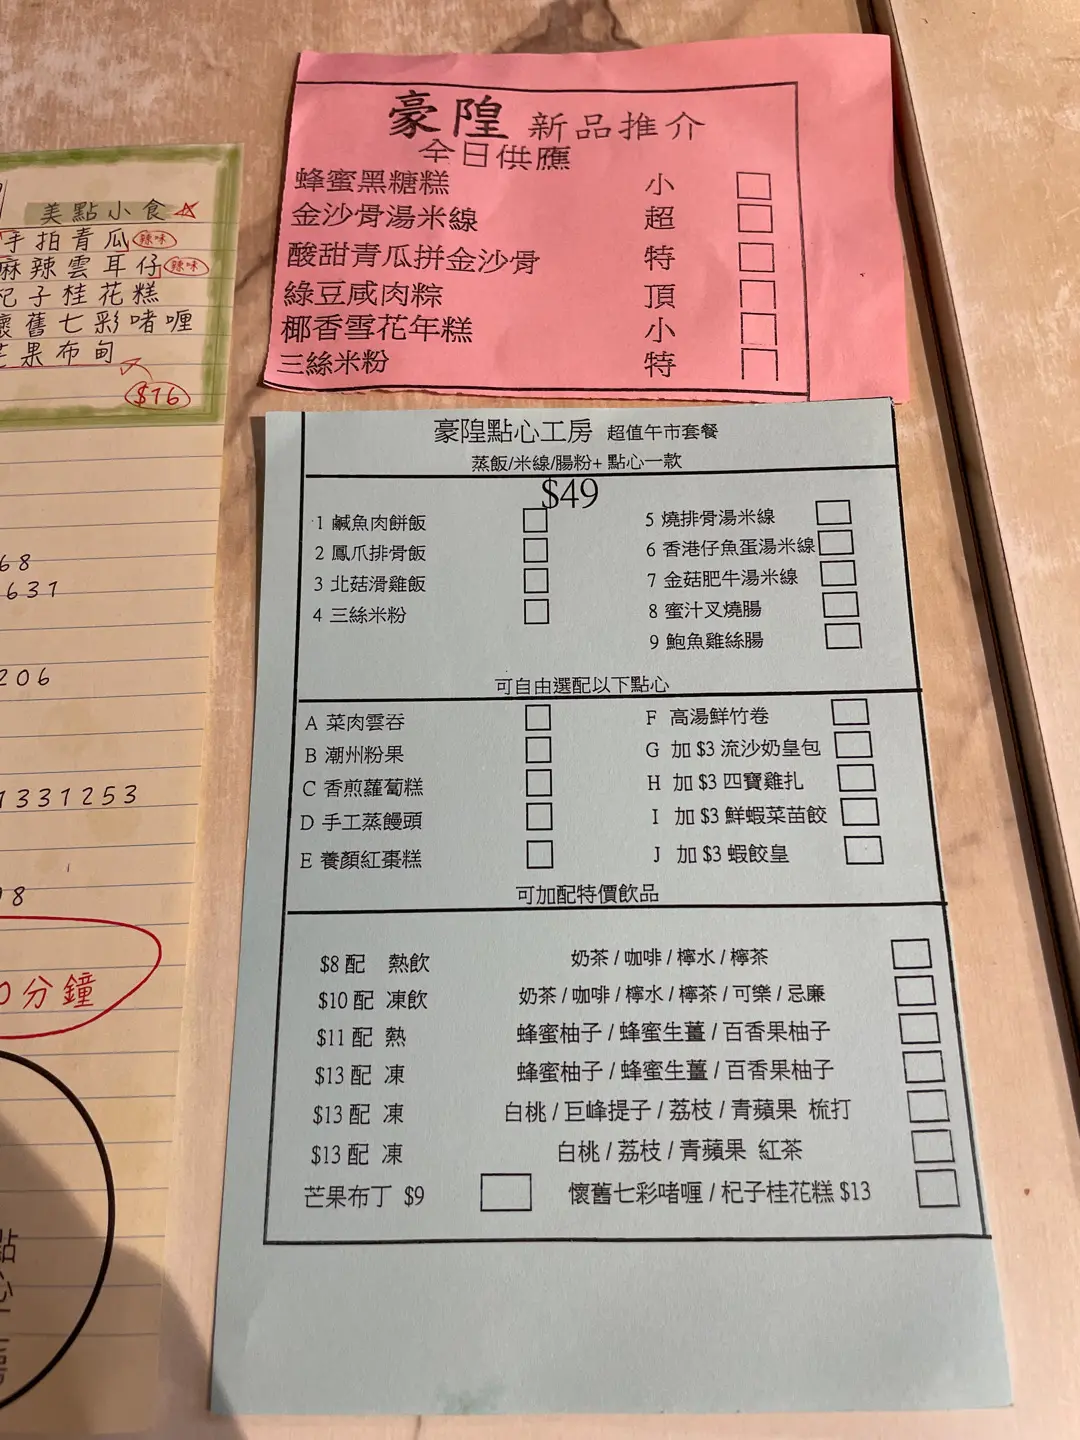 美點小食
手拍青瓜 辣味
麻辣雲耳仔 辣味
杞子桂花糕
懷舊七彩啫喱
芒果布甸
$16
68
631
206
1331253
98
0分鐘
點心工房
豪隍 新品推介
全日供應
蜂蜜黑糖糕 小
金沙骨湯米線 超
酸甜青瓜拼金沙骨 特
綠豆咸肉粽 頂
椰香雪花年糕 小
三絲米粉 特
豪隍點心工房 超值午市套餐
蒸飯/米線/腸粉+ 點心一款
$49
1 鹹魚肉餅飯
2 鳳爪排骨飯
3 北菇滑雞飯
4 三絲米粉
5 燒排骨湯米線
6 香港仔魚蛋湯米線
7 金菇肥牛湯米線
8 蜜汁叉燒腸
9 鮑魚雞絲腸
可自由選配以下點心
A 菜肉雲吞
B 潮州粉果
C 香煎蘿蔔糕
D 手工蒸饅頭
E 養顏紅棗糕
F 高湯鮮竹卷
G 加 $3 流沙奶皇包
H 加 $3 四寶雞扎
I 加 $3 鮮蝦菜苗餃
J 加 $3 蝦餃皇
可加配特價飲品
$8 配 熱飲 奶茶 / 咖啡 / 檸水 / 檸茶
$10 配 凍飲 奶茶 / 咖啡 / 檸水 / 檸茶 / 可樂 / 忌廉
$11 配 熱 蜂蜜柚子 / 蜂蜜生薑 / 百香果柚子
$13 配 凍 蜂蜜柚子 / 蜂蜜生薑 / 百香果柚子
$13 配 凍 白桃 / 巨峰提子 / 荔枝 / 青蘋果 梳打
$13 配 凍 白桃 / 荔枝 / 青蘋果 紅茶
芒果布丁 $9 懷舊七彩啫喱 / 杞子桂花糕 $13